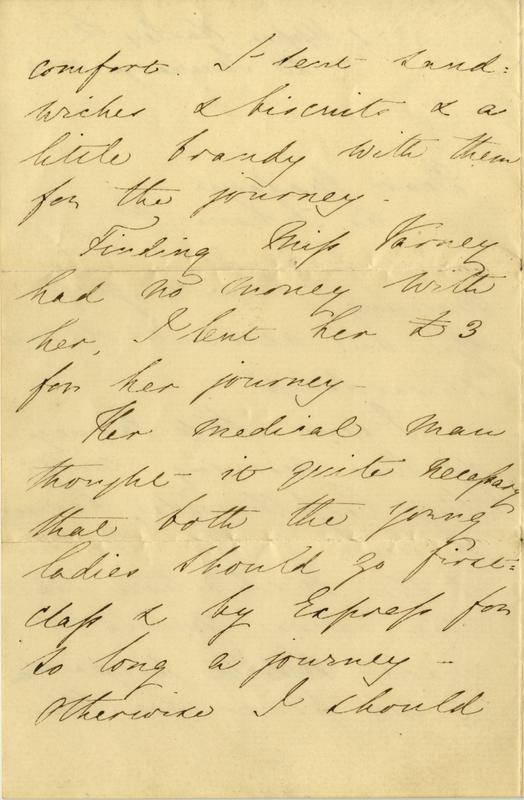 comfort. I sent sand=
wiches & biscuits & a
little brandy with them
for the journey.
Finding Miss Varney
had no money with
her, I lent her £3
for her journey -
Her medical man
thought it quite necessary
that both the young
ladies should go first=
class & by Express for
so long a journey -
otherwise I should